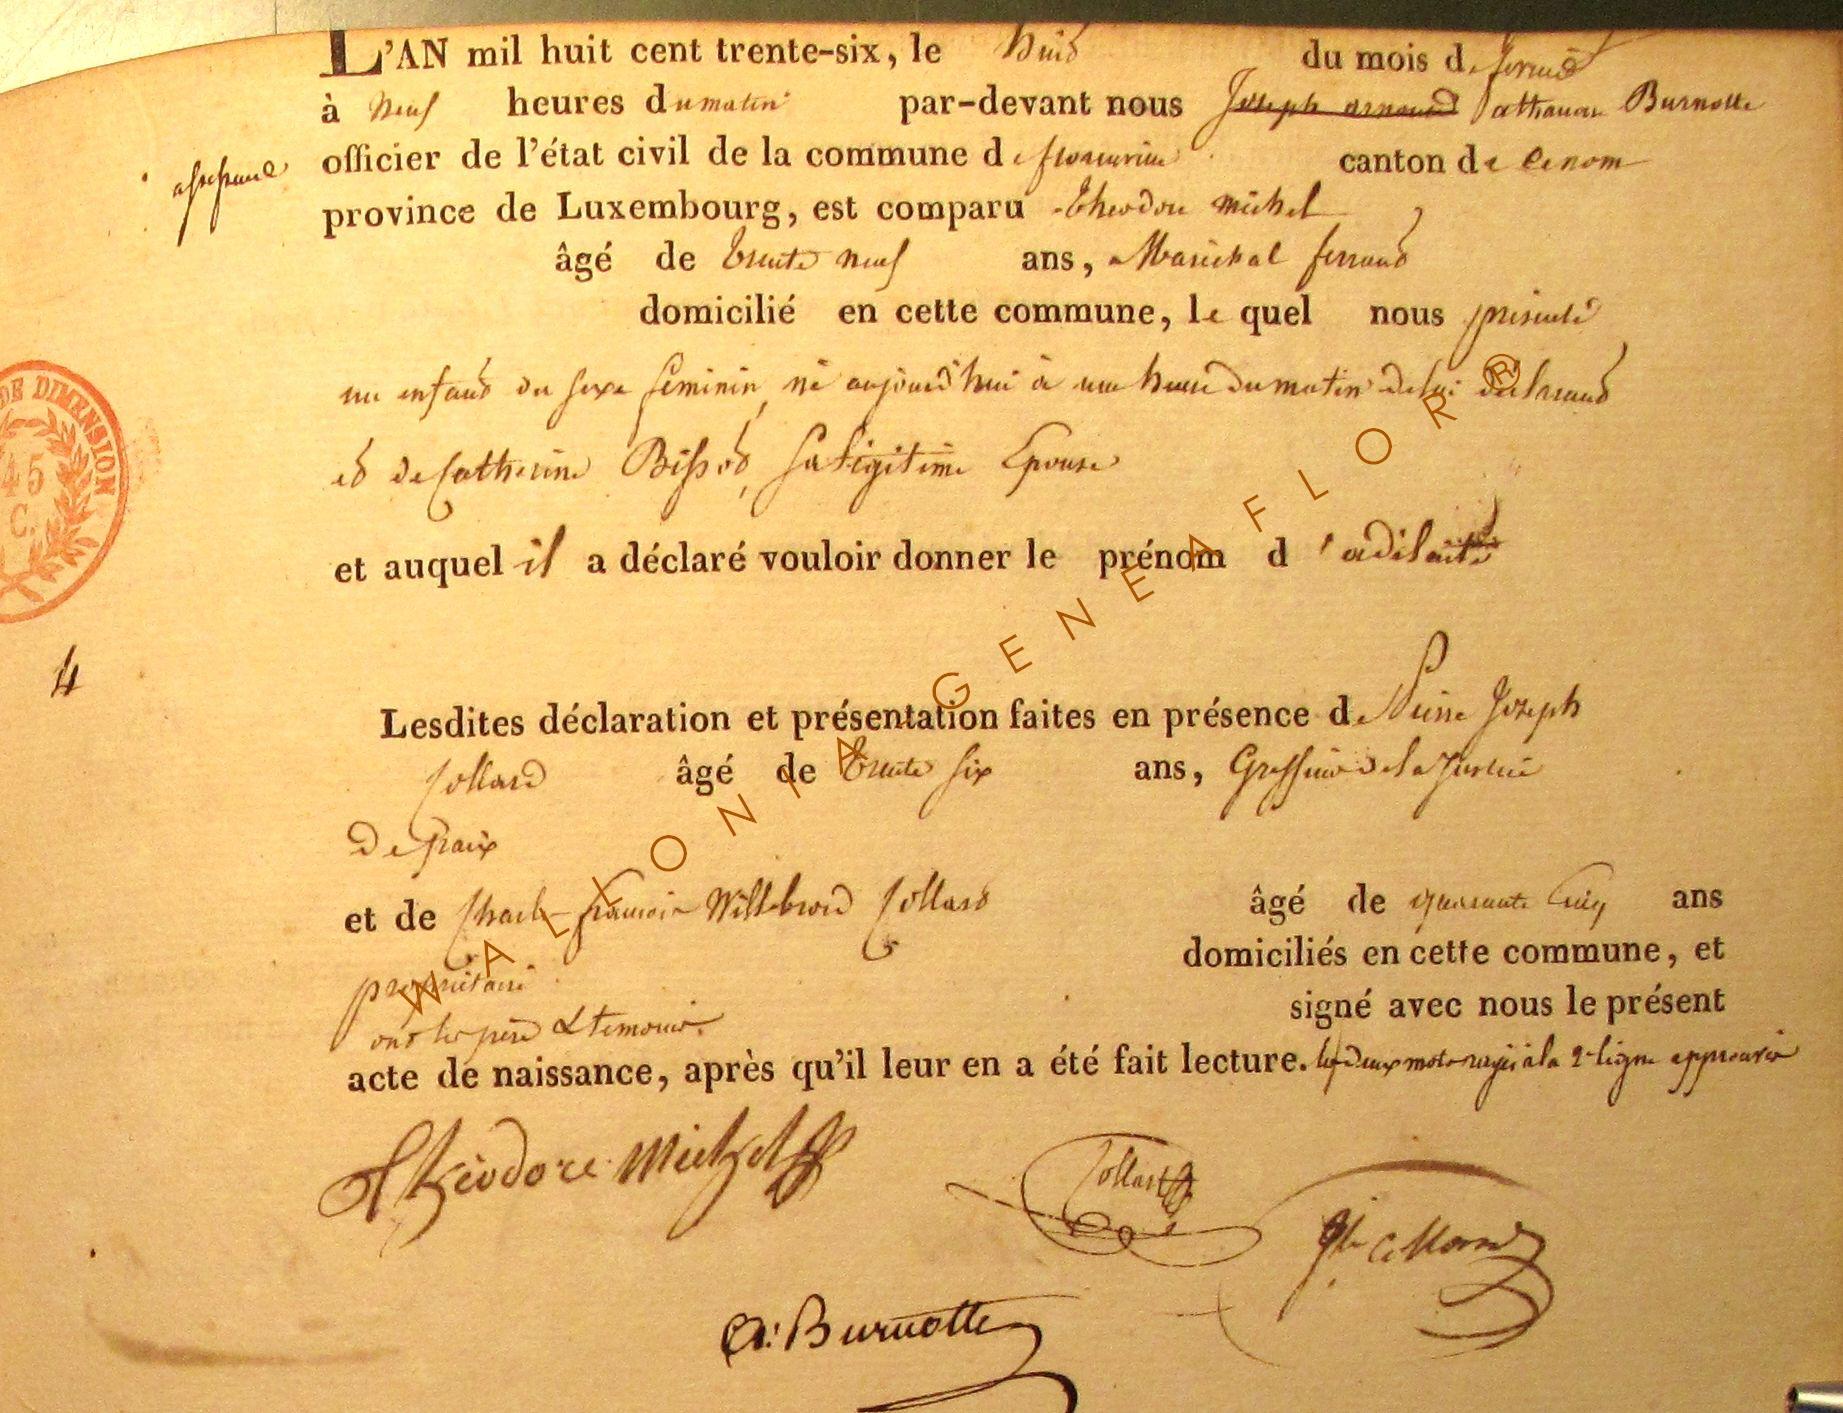 L'AN mil huit cent trente-six, le huit du mois de fevrier
à neuf heures du matin par-devant nous Joseph arnould athanase Burnotte
officier de l'état civil de la commune de florenville canton de
province de Luxembourg, est comparu Theodore michel
âgé de trente neuf ans, Marechal ferrand
domicilié en cette commune, le quel nous presenté
un enfant du sexe feminin, né aujourd'hui à une heure du matin de lui declarant
et de Catherine Bissot, sa legitime Epouse
et auquel il a déclaré vouloir donner le prénom d'adélaïte
4
Lesdites déclaration et présentation faites en présence de Pierre Joseph
Collard âgé de trente six ans, Greffier de la Justice
de paix
et de Charles françois Willebrord Collard âgé de quarante cinq ans
propriétaire domiciliés en cette commune, et
ont les père & temoins signé avec nous le présent
acte de naissance, après qu'il leur en a été fait lecture. les deux mots rayés à la 2e ligne approuvés
Théodore Michel
Collard
A: Burnotte
DE DIMENSION
45
C.
WALLONIA GENEAFLOR ®